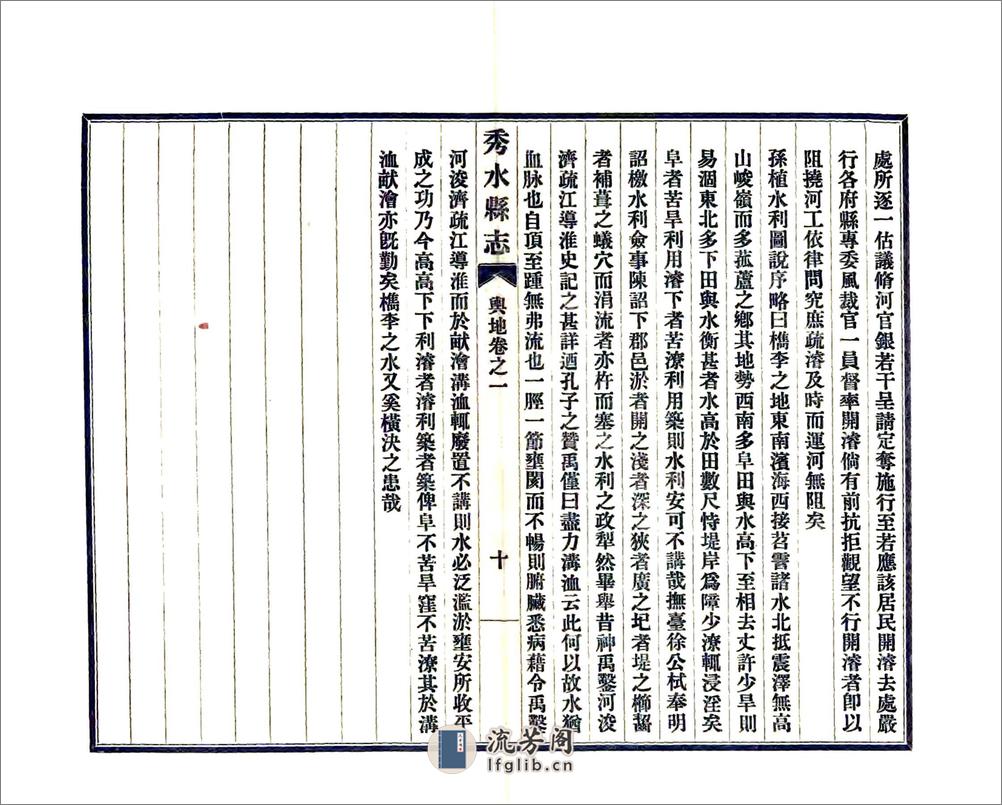 處所逐一估議脩河官銀若干呈請定奪施行至若應該居民開濬去處嚴
行各府縣專委風裁官一員督率開濬倘有前抗拒觀望不行開濬者卽以
阻撓河工依律問究庶疏濬及時而運河無阻矣
孫植水利圖說序略曰檇李之地東南濱海西接苕霅諸水北抵震澤無高
山峻嶺而多菰蘆之鄉其地勢西南多阜田與水高下至相去丈許少旱則
易涸東北多下田與水衡甚者水高於田數尺恃堤岸爲障少潦輒浸淫矣
阜者苦旱利用濬下者苦潦利用築則水利安可不講哉撫臺徐公栻奉明
詔檄水利僉事陳詔下郡邑淤者開之淺者深之狹者廣之圮者堤之櫛齧
者補葺之蟻穴而涓流者亦杵而塞之水利之政犁然畢舉昔神禹鑿河浚
濟疏江導淮史記之甚詳迺孔子之贊禹僅曰盡力溝洫云此何以故水猶
血脉也自頂至踵無弗流也一脛一節壅閡而不暢則腑臟悉病藉令禹鑿
秀水縣志 輿地卷之一 十
河浚濟疏江導淮而於畎澮溝洫輒廢置不講則水必泛濫淤壅安所收平
成之功乃今高高下下利濬者濬利築者築俾阜不苦旱窪不苦潦其於溝
洫畎澮亦旣勤矣檇李之水又奚橫決之患哉
流芳阁
lfglib.cn